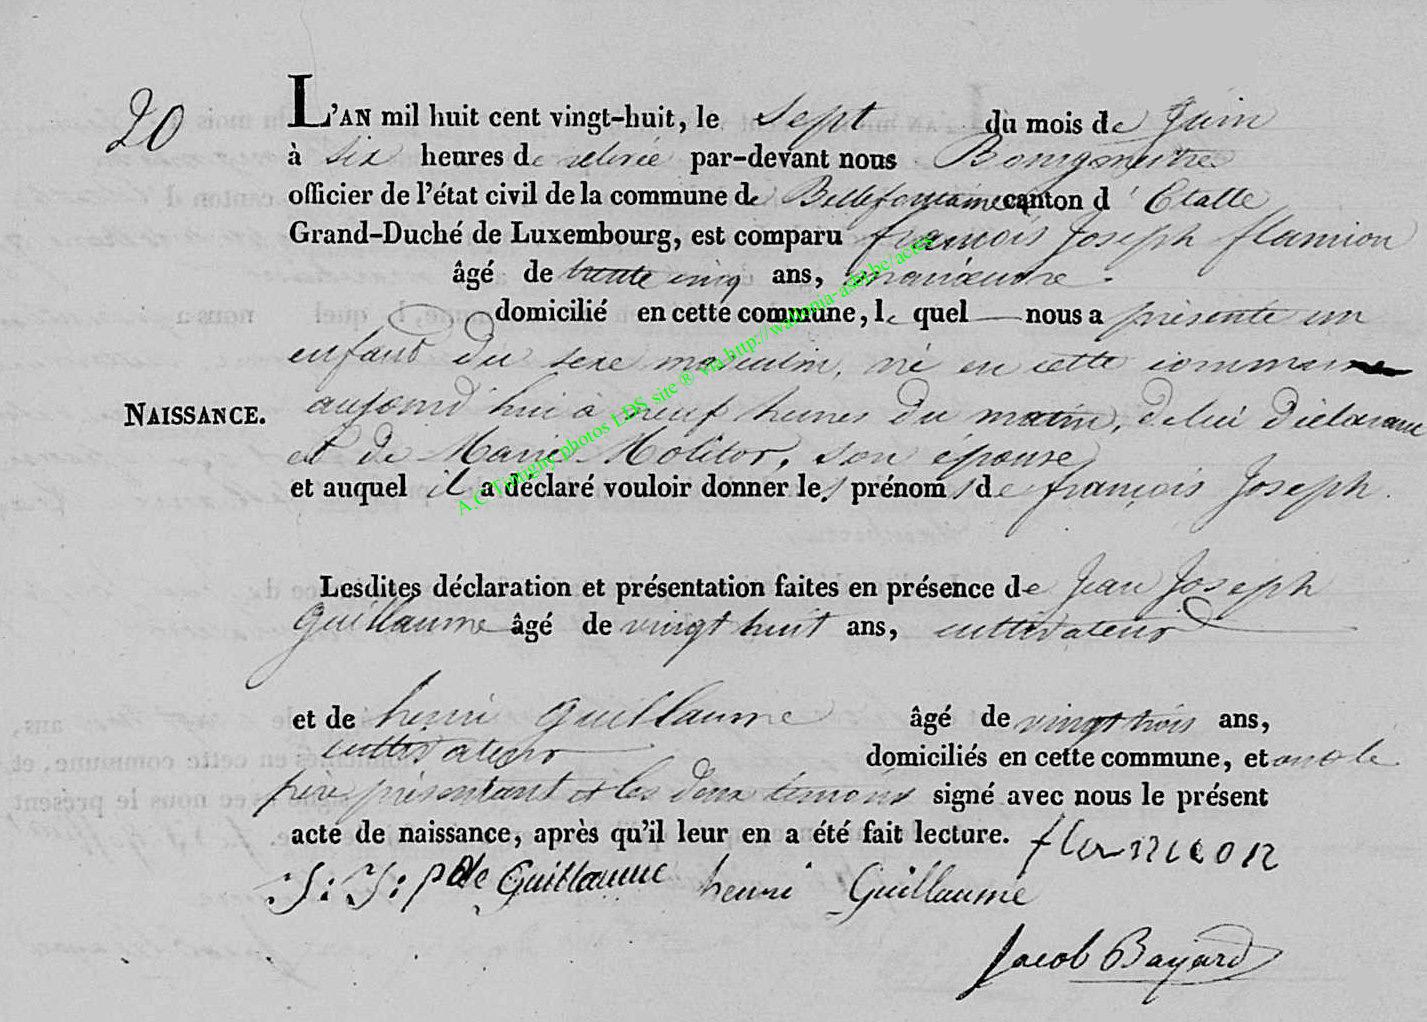 20
L'AN mil huit cent vingt-huit, le sept du mois de Juin
à six heures de relevée par-devant nous Bourgmestre
officier de l'état civil de la commune de Bellefontaine canton d'Etalle
Grand-Duché de Luxembourg, est comparu françois Joseph flamion
âgé de trente cinq ans, manoeuvre.
domicilié en cette commune, le quel nous a présenté un
enfant du sexe masculin, né en cette commune
NAISSANCE. aujourd'hui à neuf heures du matin, de lui déclarant
et de Marie Molitor, son épouse,
et auquel il a déclaré vouloir donner les prénoms de françois Joseph.
Lesdites déclaration et présentation faites en présence de Jean Joseph
Guillaume âgé de vingt huit ans, cultivateur
et de henri Guillaume âgé de vingt trois ans,
cultivateur domiciliés en cette commune, et ont le
père présentant et les deux témoins signé avec nous le présent
acte de naissance, après qu'il leur en a été fait lecture. flamion
J: J: Guillaume henri Guillaume
Jacob Bayard
A.C. Tintigny photos LDS site ® via http://wallonia-asbl.be/actes